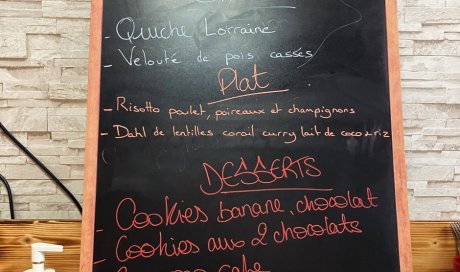 - Quiche Lorraine
- Velouté de pois cassés
Plat
- Risotto poulet, poireaux et champignons
- Dahl de lentilles corail curry lait de coco & riz
DESSERTS
- Cookies banane, chocolat
- Cookies aux 2 chocolats
cake